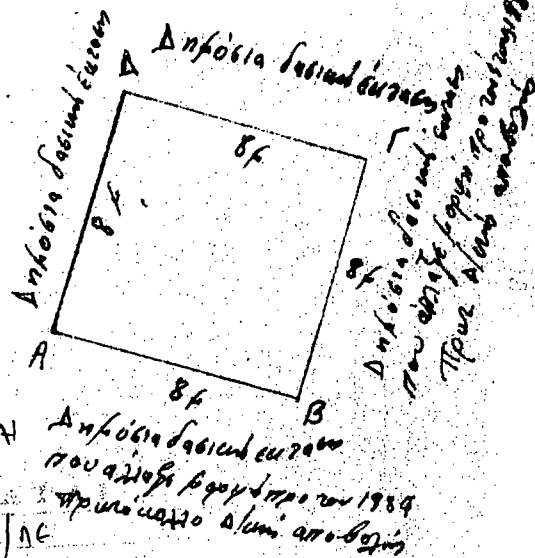 Δημόσια δασική έκταση
Δ
Δημόσια δασική έκταση
Γ
8μ
8μ
8μ
8μ
Α
Β
Δημόσια δασική έκταση
που άλλαξε μορφή προ του
Πρωτ Δ/κής αποβολής
Δημόσια δασική έκταση
που άλλαξε μορφή προ του 1984
πρωτόκολλο Δ/κής αποβολής